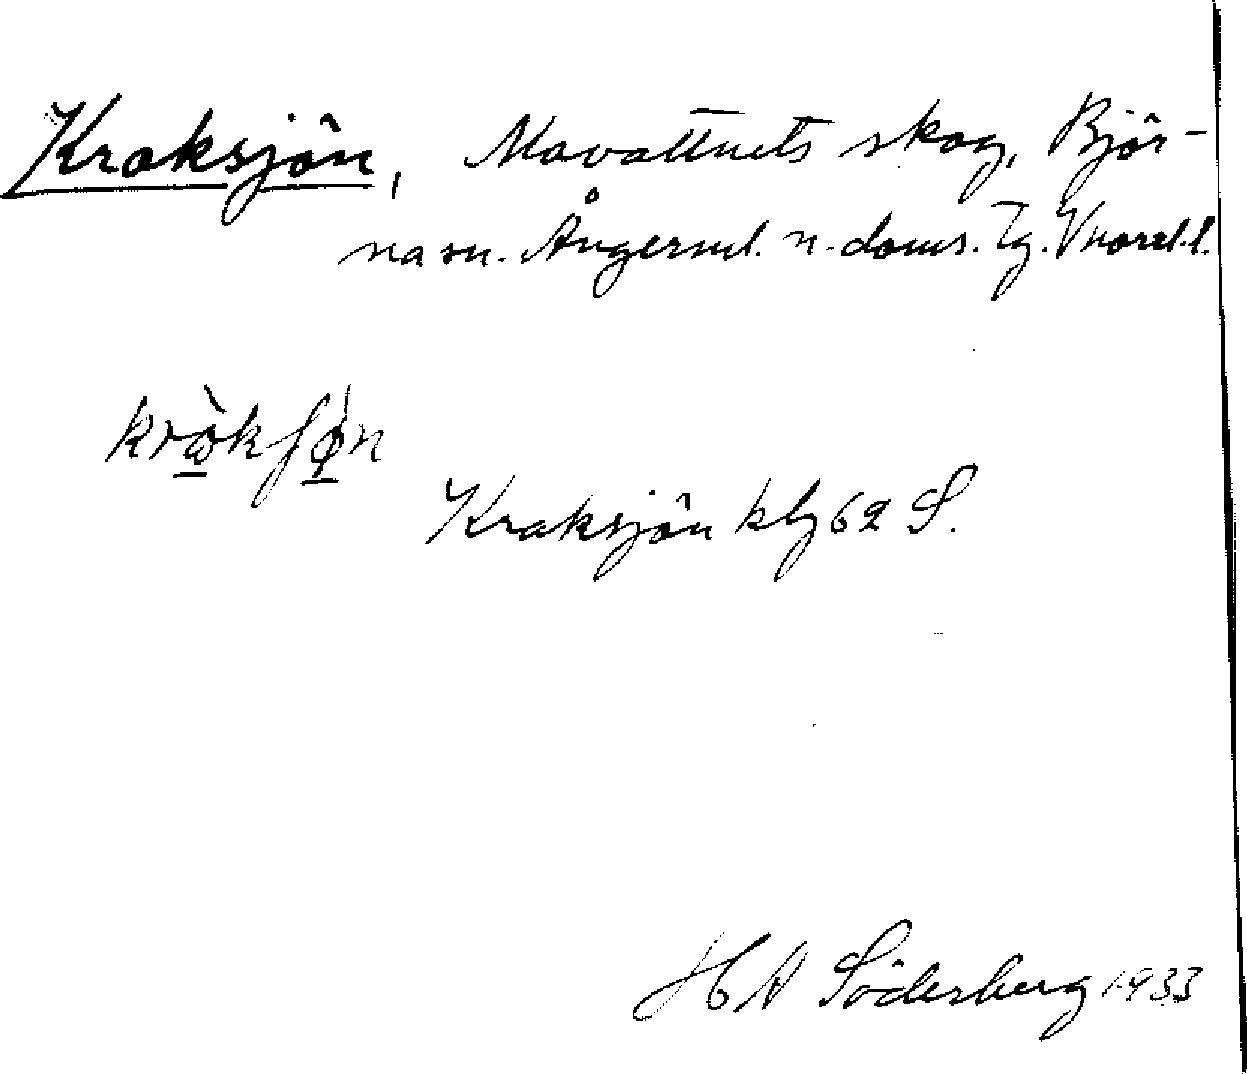 Kraksjön, Movattnets skog, Björ-
na sn. Ångerml. n. doms. Tg. Vnorrl. l.
kràkʃø̀n
Kraksjön kbg 62 S.
H A Söderberg 1933